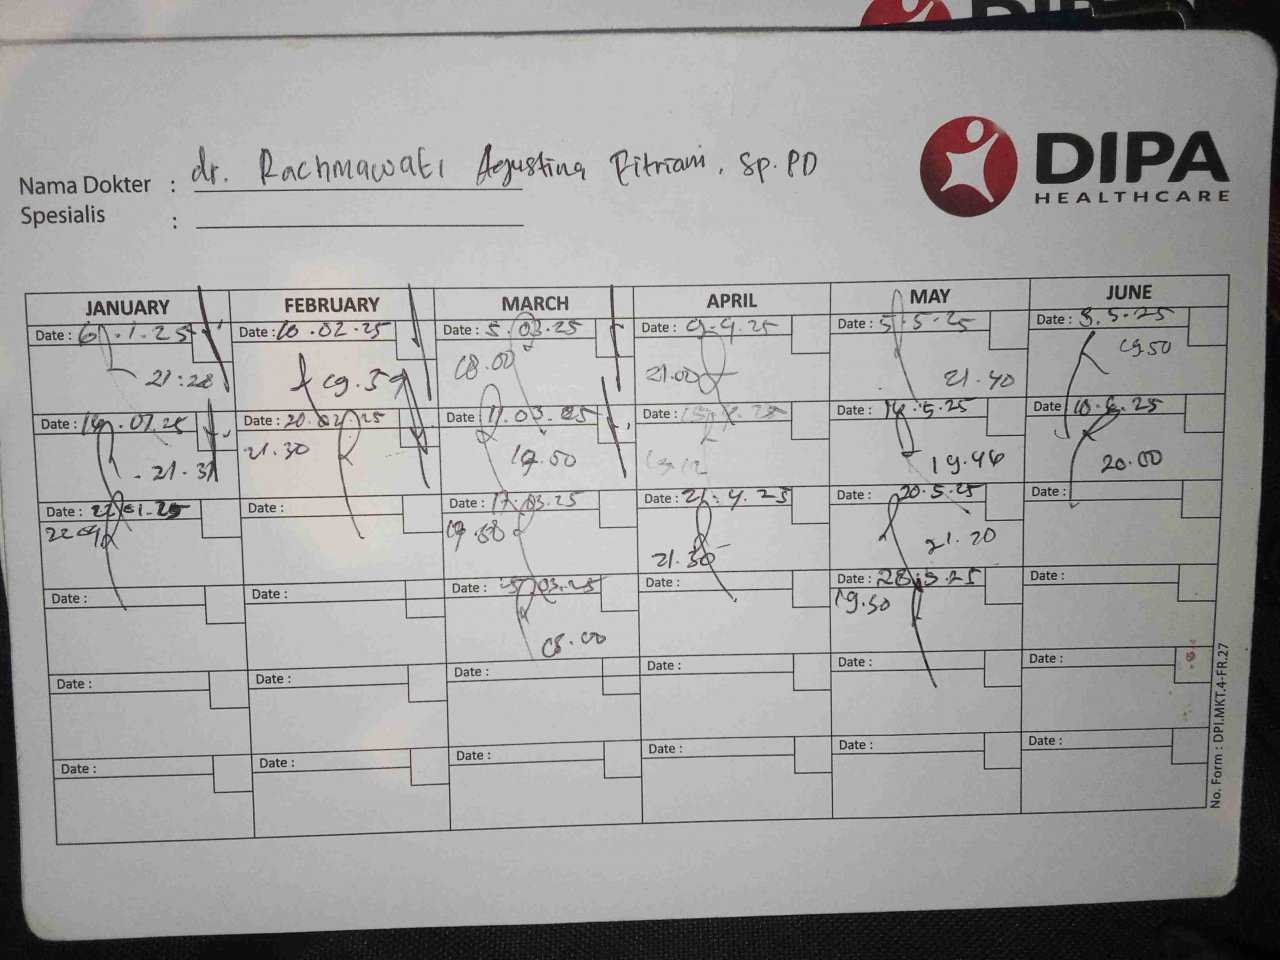 DIPA
HEALTHCARE
Nama Dokter : dr. Rachmawati Agustina Fitriani, Sp.PD
Spesialis :
JANUARY FEBRUARY MARCH APRIL MAY JUNE
Date : 6.1.25 Date : 10.02.25 Date : 5.03.25 Date : 9.4.25 Date : 5.5.25 Date : 3.5.25
21:28 19.59 18.00 21.00 21.40 19.50
Date : Date : 20.02.25 Date : 11.03.25 Date : Date : 14.5.25 Date : 10.6.25
21.31 21.30 19.50 19.46 20.00
Date : 22.01.25 Date : Date : 17.03.25 Date : 21.4.25 Date : 20.5.25 Date :
21.30 21.20
Date : Date : Date : 03.25 Date : Date : 28.5.25 Date :
18.00 19.50
Date : Date : Date : Date : Date : Date :
Date : Date : Date : Date : Date : Date :
No. Form : DPI.MKT.4-FR.27